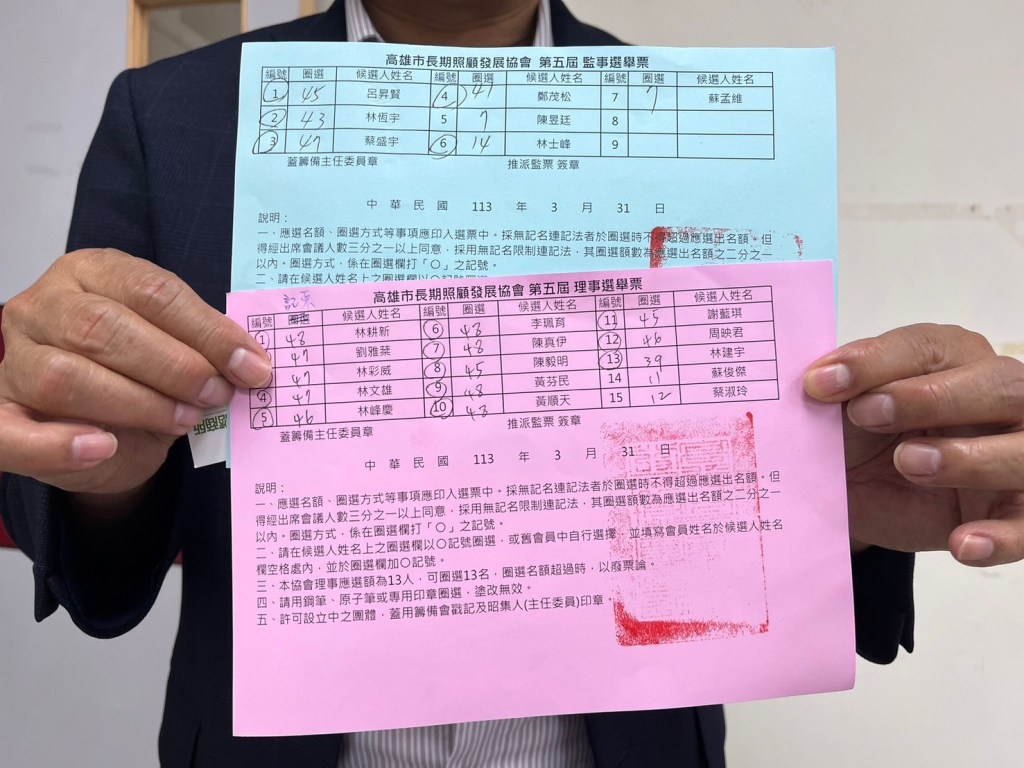 高雄市長期照顧發展協會 第五屆 監事選舉票
編號 圈選 候選人姓名 編號 圈選 候選人姓名 編號 圈選 候選人姓名
1 45 呂昇賢 4 47 鄭茂松 7 7 蘇孟維
2 43 林恆宇 5 7 陳昱廷 8
3 47 蔡盛宇 6 14 林士峰 9
蓋籌備主任委員章 推派監票 簽章
中 華 民 國 113 年 3 月 31 日
說明：
一、應選名額、圈選方式等事項應印入選票中。採無記名連記法者於圈選時不得超過應選出名額。但
得經出席會議人數三分之一以上同意，採用無記名限制連記法，其圈選額數為應選出名額之二分之一
以內。圈選方式，係在圈選欄打「〇」之記號。
高雄市長期照顧發展協會 第五屆 理事選舉票
編號 圈選 候選人姓名 編號 圈選 候選人姓名 編號 圈選 候選人姓名
1 48 林耕新 6 48 李珮育 11 45 謝藍琪
47 劉雅棻 7 48 陳真伊 12 46 周映君
47 林彩威 8 45 陳毅明 13 39 林建宇
4 47 林文雄 9 48 黃芬民 14 11 蘇俊傑
5 46 林峰慶 10 43 黃順天 15 12 蔡淑玲
蓋籌備主任委員章 推派監票 簽章
中 華 民 國 113 年 3 月 31 日
說明：
一、應選名額、圈選方式等事項應印入選票中。採無記名連記法者於圈選時不得超過應選出名額。但
得經出席會議人數三分之一以上同意，採用無記名限制連記法，其圈選額數為應選出名額之二分之一
以內。圈選方式，係在圈選欄打「〇」之記號。
二、請在候選人姓名上之圈選欄以〇記號圈選，或舊會員中自行選擇，並填寫會員姓名於候選人姓名
欄空格處內，並於圈選欄加〇記號。
三、本協會理事應選額為13人，可圈選13名，圈選名額超過時，以廢票論。
四、請用鋼筆、原子筆或專用印章圈選，塗改無效。
五、許可設立中之團體，蓋用籌備會戳記及昭集人(主任委員)印章。